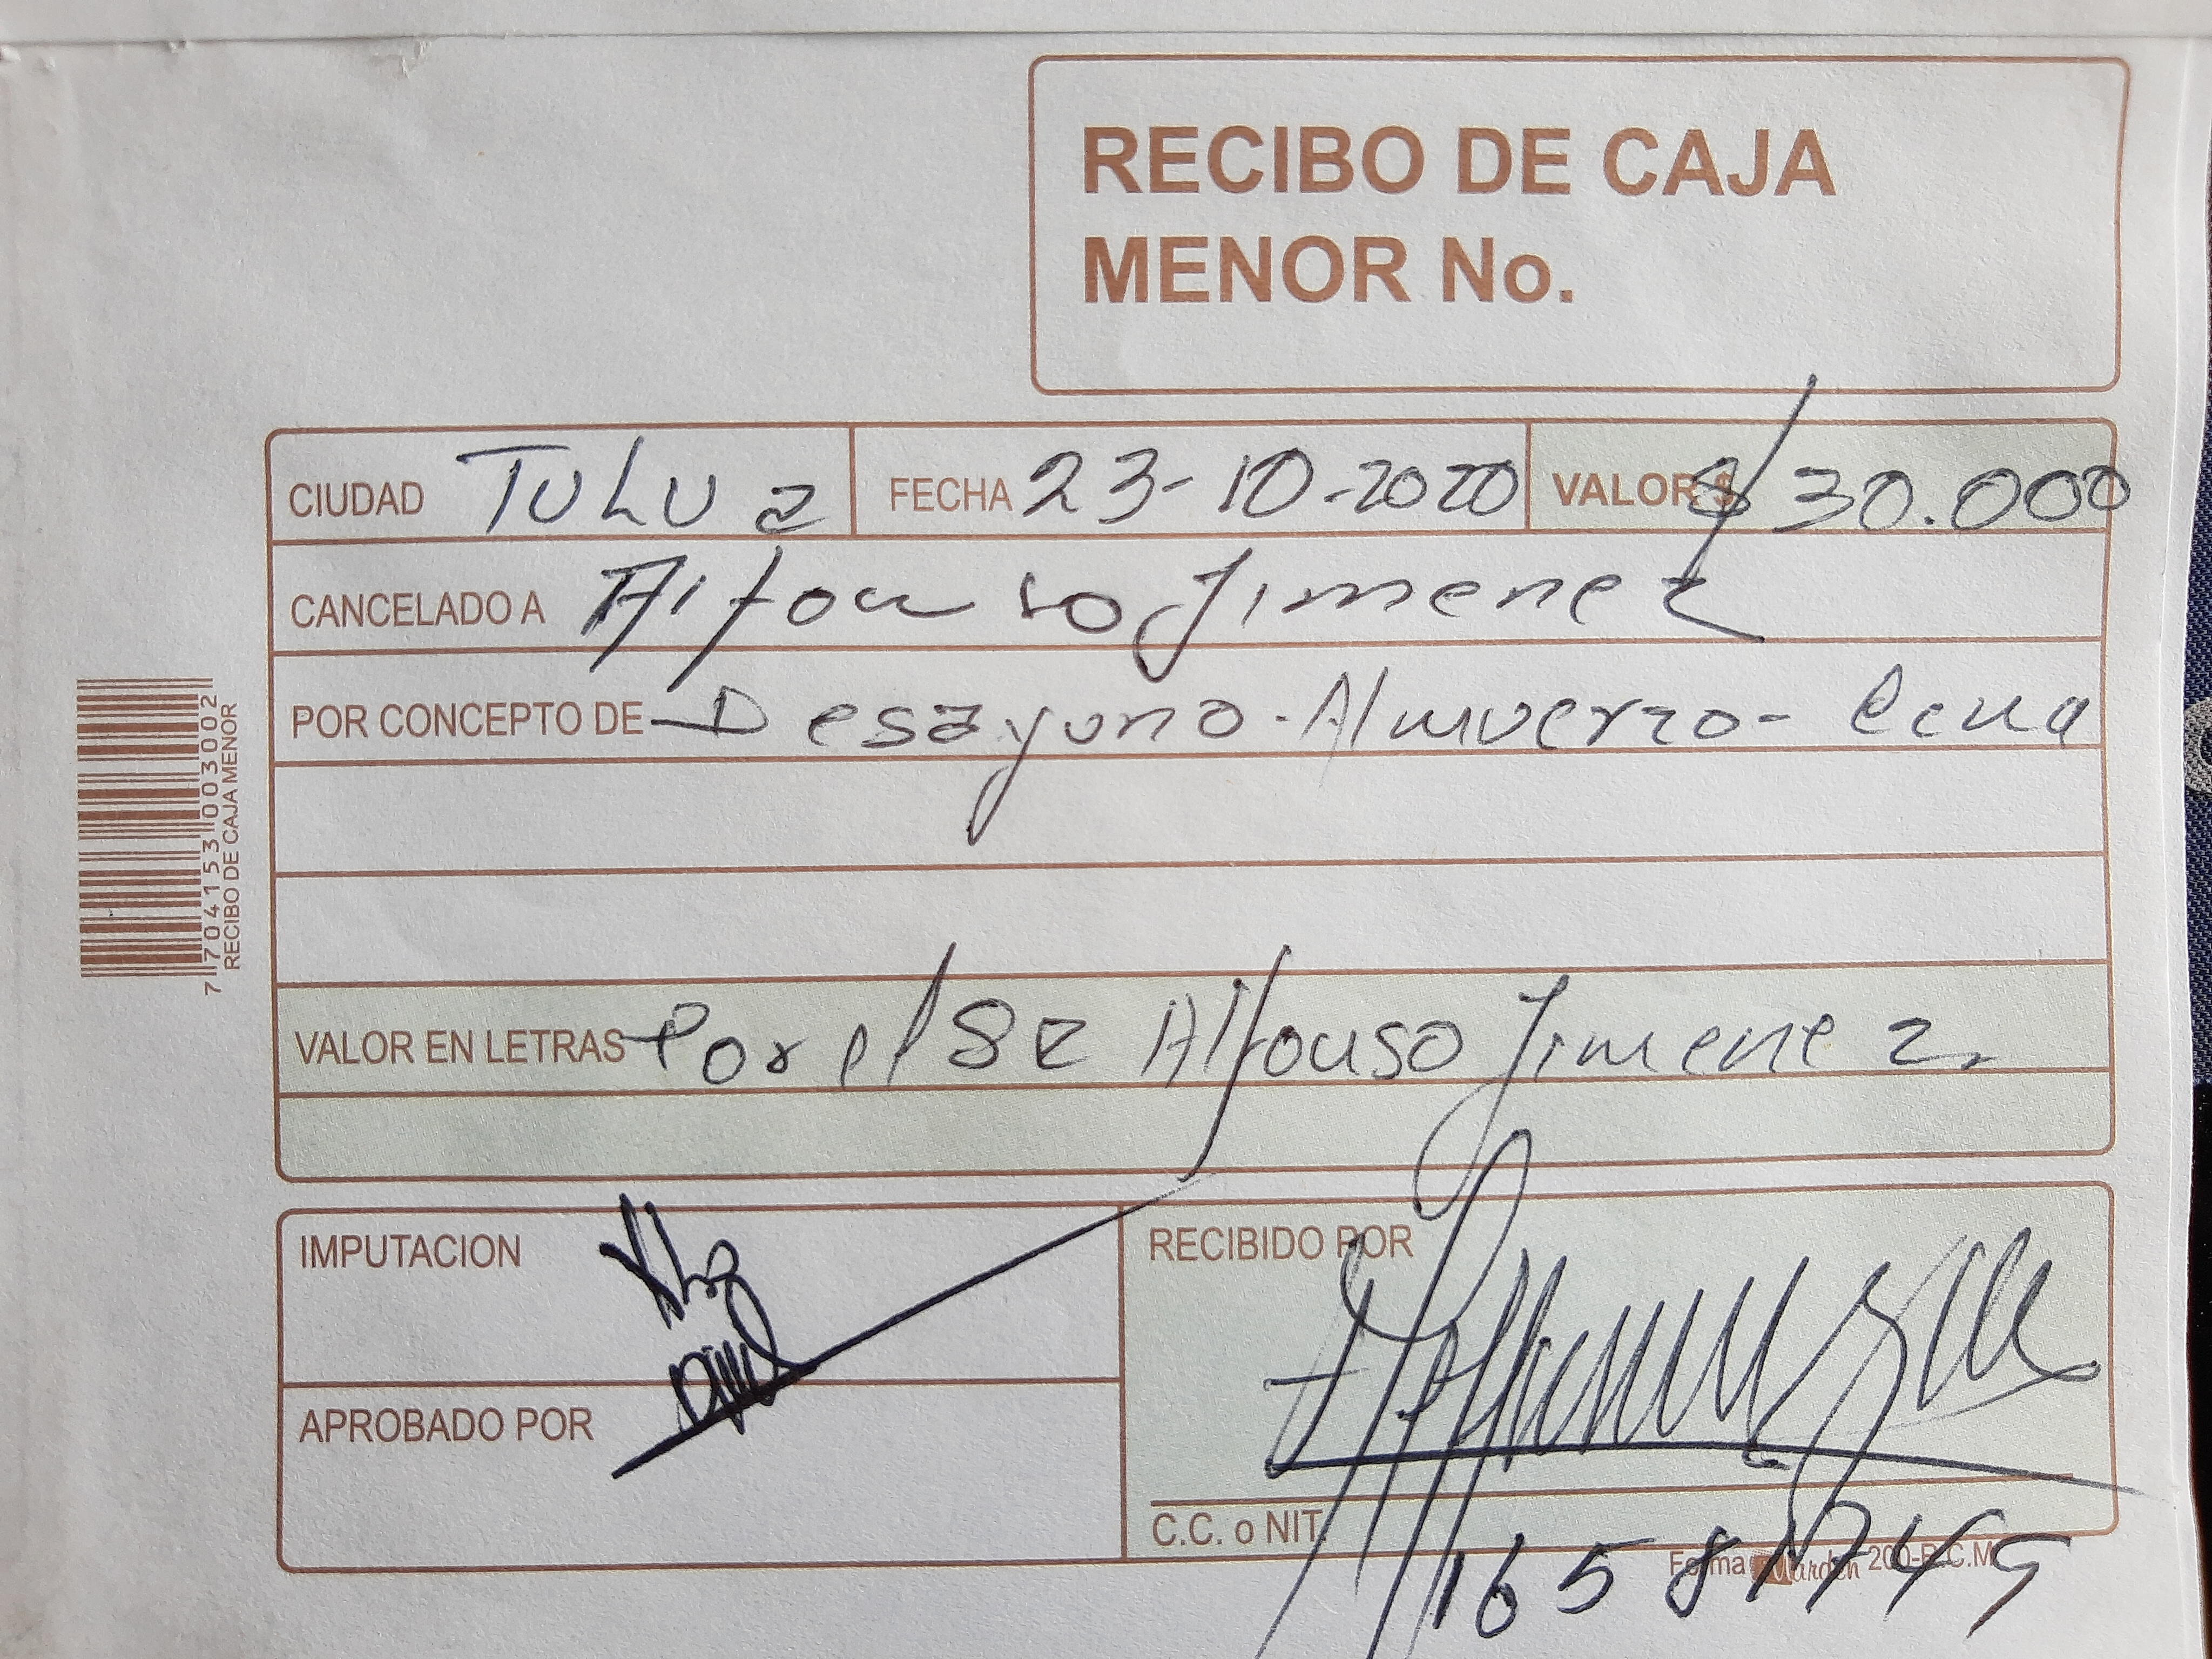 RECIBO DE CAJA
MENOR No.
CIUDAD TULUa FECHA 23-10-2020 VALOR $ $ 30.000
CANCELADO A Alfonso Jimenez
POR CONCEPTO DE Desayuno-Almuerzo-Cena
VALOR EN LETRAS Por el SR Alfonso Jimenez
IMPUTACION
RECIBIDO POR
APROBADO POR
C.C. o NIT.
Forma 200-R.C.M.
7 704153 003002
RECIBO DE CAJA MENOR